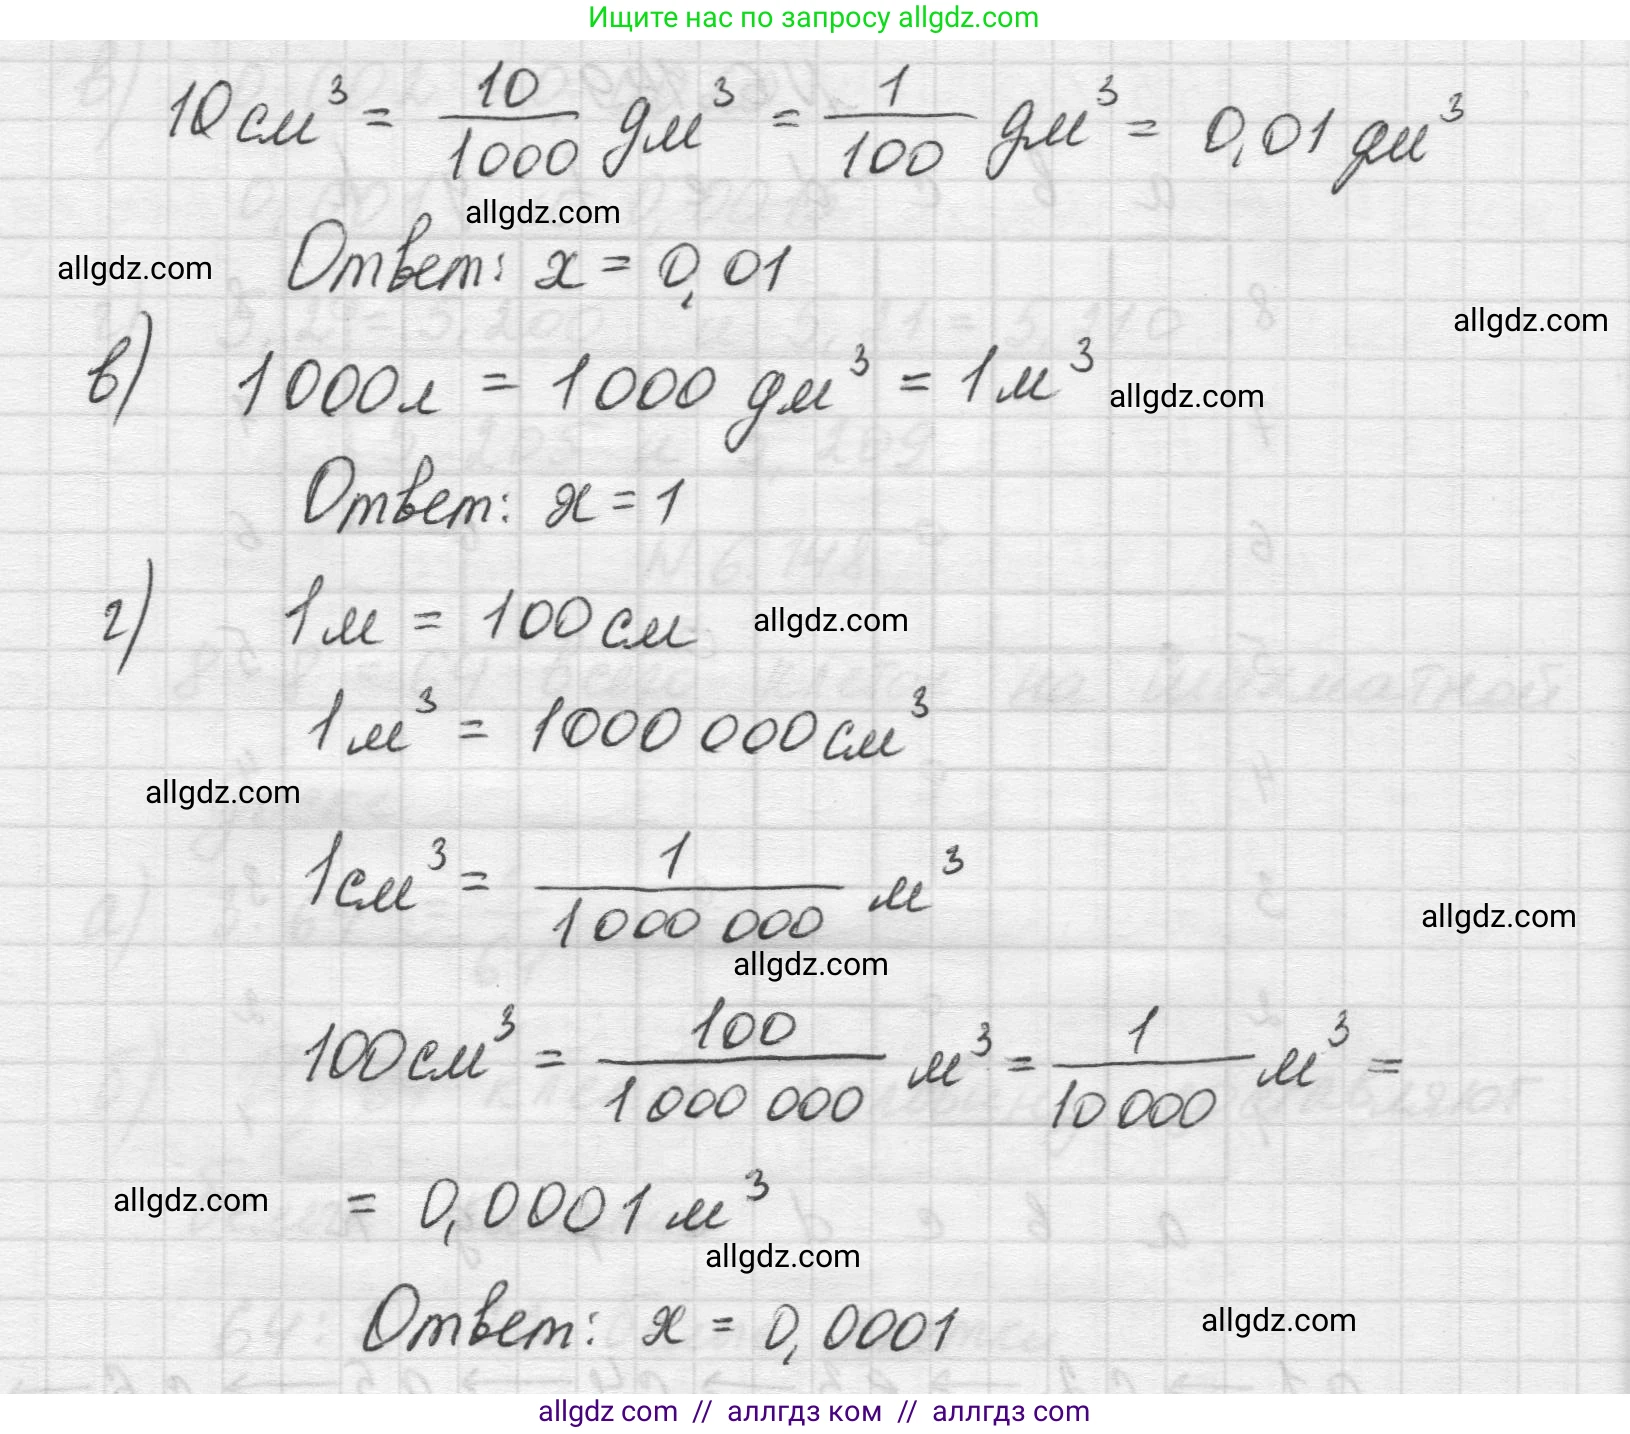 Ищите нас по запросу allgdz.com
10 см³ = 10/1000 дм³ = 1/100 дм³ = 0,01 дм³
allgdz.com
allgdz.com
Ответ: x = 0,01
allgdz.com
в) 1000 л = 1000 дм³ = 1 м³
allgdz.com
Ответ: x = 1
г) 1 м = 100 см
allgdz.com
1 м³ = 1000 000 см³
allgdz.com
1 см³ = 1/1 000 000 м³
allgdz.com
allgdz.com
100 см³ = 100/1 000 000 м³ = 1/10 000 м³ =
allgdz.com
= 0,0001 м³
allgdz.com
Ответ: x = 0,0001
allgdz.com
allgdz com // аллгдз ком // аллгдз com